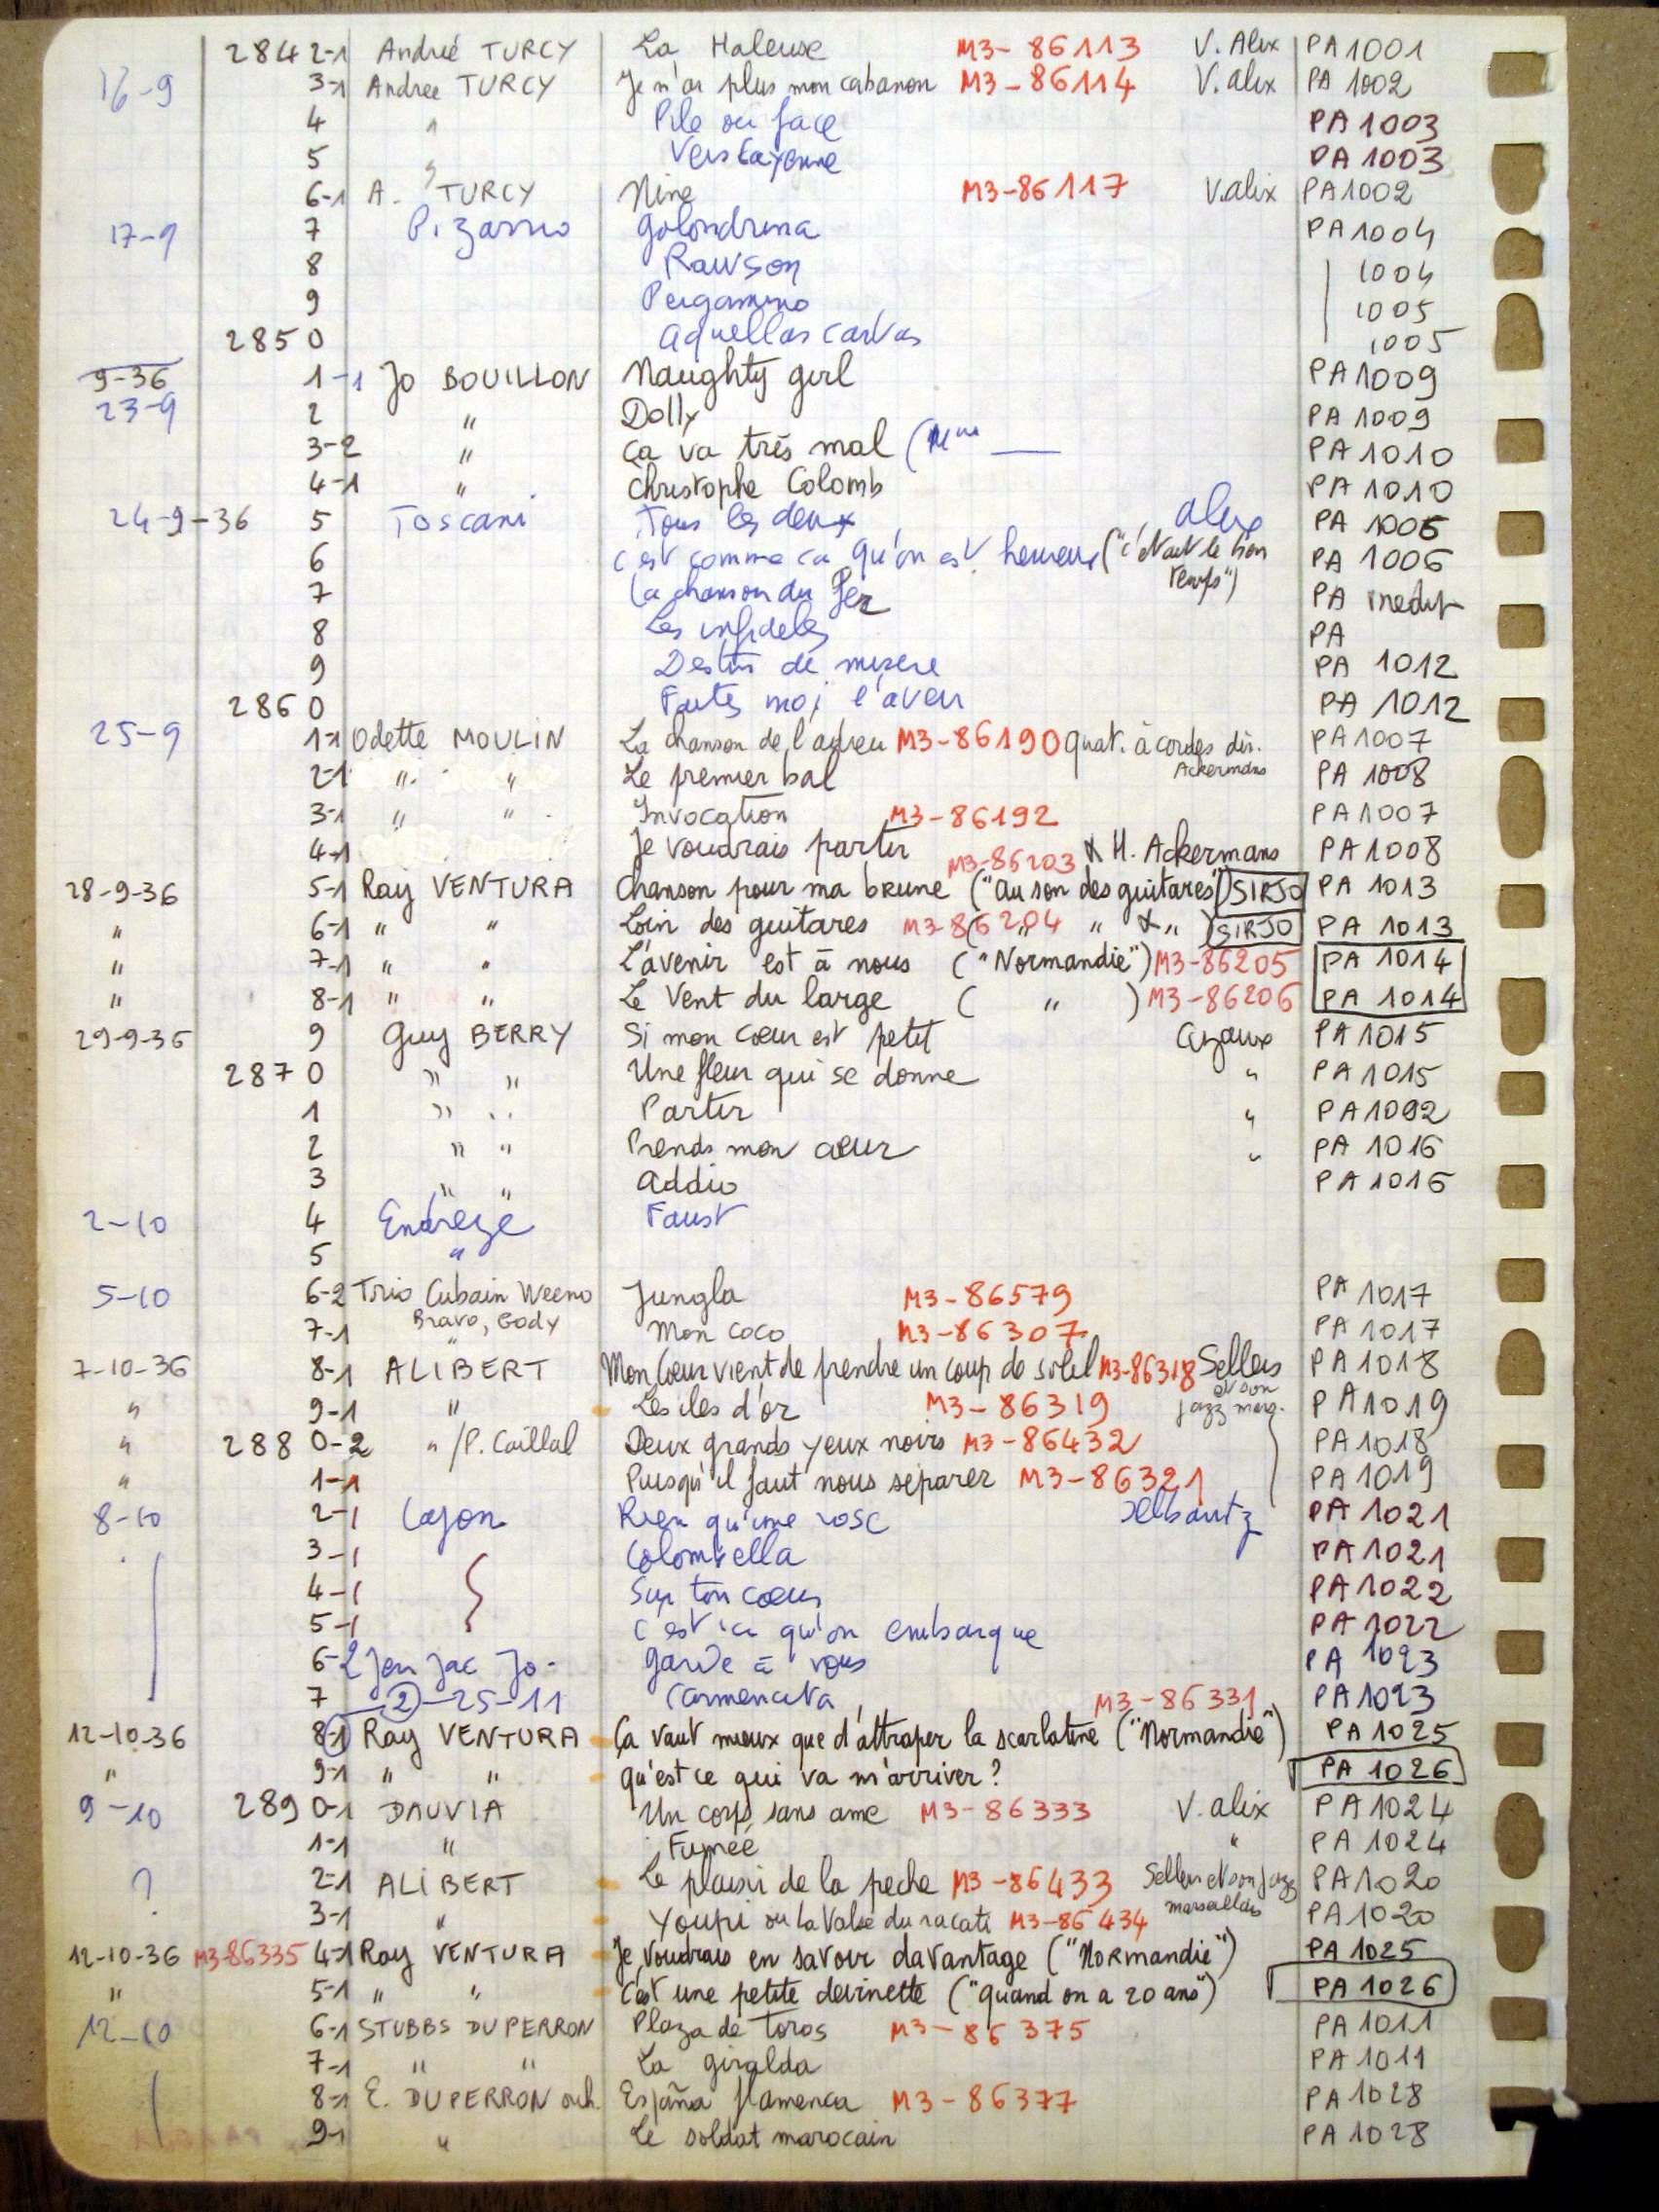 2842-1 Andrée TURCY La Haleuse M3-86113 V. Alix PA 1001
16-9 3-1 Andree TURCY Je n'ai plus mon cabanon M3-86114 V. alix PA 1002
4 " Pile ou face PA 1003
5 " Vers Cayenne PA 1003
6-1 A. TURCY Nine M3-86117 V. alix PA 1002
17-9 7 Pizarro Golondrina PA 1004
8 Rawson 1004
9 Pergamino 1005
2850 aquellas cartas 1005
9-36 1-1 Jo BOUILLON Naughty girl PA 1009
23-9 2 " Dolly PA 1009
3-2 " ça va très mal PA 1010
4-1 " Christophe Colomb PA 1010
24-9-36 5 Toscani Tous les deux alix PA 1006
6 c'est comme ca qu'on est heureux ("c'etait le bon temps") PA 1006
7 La chanson du fer PA inedit
8 Les infideles PA
9 Destin de misere PA 1012
2860 Faites moi l'aveu PA 1012
25-9 1-1 Odette MOULIN La chanson de l'adieu M3-86190 Quat. à cordes dir. Ackermans PA 1007
2-1 " " Le premier bal PA 1008
3-1 " " Invocation M3-86192 PA 1007
4-1 Je voudrais partir & H. Ackermans PA 1008
28-9-36 5-1 Ray VENTURA Chanson pour ma brune M3-86203 ("Au son des guitares") SIRJO PA 1013
" 6-1 " " Loin des guitares M3-86204 ( " " & " ) SIRJO PA 1013
" 7-1 " " L'avenir est à nous ("Normandie") M3-86205 PA 1014
" 8-1 " " Le Vent du large ( " ) M3-86206 PA 1014
29-9-36 9 Guy BERRY Si mon cœur est petit Cazaux PA 1015
2870 " " Une fleur qui se donne " PA 1015
1 " " Partir " PA 1092
2 " " Prends mon cœur " PA 1016
3 " " Addio PA 1016
2-10 4 Endreze Faust
5 "
5-10 6-2 Trio Cubain Weeno Jungla M3-86579 PA 1017
7-1 Bravo, Gody " Mon coco M3-86307 PA 1017
7-10-36 8-1 ALIBERT Mon Cœur vient de prendre un coup de soleil M3-86318 Sellers PA 1018
" 9-1 " Les iles d'or M3-86319 et son jazz mars. PA 1019
" 2880-2 " /P. Caillal Deux grands yeux noirs M3-86432 PA 1018
" 1-1 Puisqu'il faut nous séparer M3-86321 PA 1019
8-10 2-1 Cayon Rien qu'une rose PA 1021
3-1 Colombella PA 1021
4-1 Sur ton cœur PA 1022
5-1 c'est ici qu'on embarque PA 1022
6-2 Jen Jac Jo- Garde à vous PA 1023
7 2-25-11 Carmencita PA 1023
12-10-36 8-1 Ray VENTURA Ça vaut mieux que d'attraper la scarlatine M3-86331 ("Normandie") PA 1025
" 9-1 " " Qu'est ce qui va m'arriver? PA 1026
9-10 2890-1 DAUVIA Un corps sans ame M3-86333 V. alix PA 1024
1-1 " Fumée " PA 1024
? 2-1 ALIBERT Le plaisir de la peche M3-86433 Sellers et son jazz PA 1020
3-1 " Youpi ou La Valse du racati M3-86434 marseillais PA 1020
12-10-36 M3-86335 4-1 Ray VENTURA Je voudrais en savoir davantage ("Normandie") PA 1025
" 5-1 " " C'est une petite devinette ("Quand on a 20 ans") PA 1026
12-10 6-1 STUBBS DUPERRON Plaza de toros M3-86375 PA 1011
7-1 " " La giralda PA 1011
8-1 E. DUPERRON orch. España flamenca M3-86377 PA 1028
9-1 " Le soldat marocain PA 1028